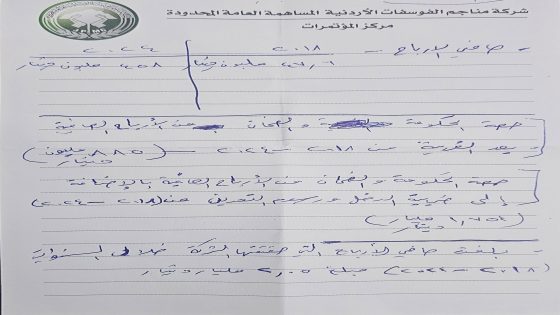 شركة مناجم الفوسفات الأردنية المساهمة العامة المحدودة
مركز المؤتمرات
٢٠١٨ ٢٠٢٤
- صافي الأرباح - ٤٧,٦ مليون دينار ٤٥٨ مليون دينار
حصة الحكومة والضمان من الأرباح الصافية
بعد الضريبة من ٢٠١٨ - ٢٠٢٤ - (٨٨٥ مليون
دينار)
حصة الحكومة والضمان من الأرباح الصافية بالإضافة
إلى ضريبة الدخل ورسوم التعدين من (٢٠١٨ - ٢٠٢٤)
(١,٧٥٢ مليار)
دينار
- بلغت صافي الأرباح التي حققتها الشركة خلال السنوات
(٢٠١٨ - ) مبلغ ٢,٠٥ مليار دينار